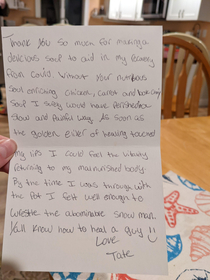 Thank you so much for making a
delicious soup to aid in my recovery
from covid. Without your nutritious
soul enriching chicken, carrot and
soup I surely would have perished a
slow and painful way. As soon as
the golden elixer of healing touched
my lips I could feel the vitality
returning to my malnourished body.
By the time I was through with
the pot I felt well enough to
wrestle the abominable snow man.
Yall know how to heal a guy :)
Love,
Tate